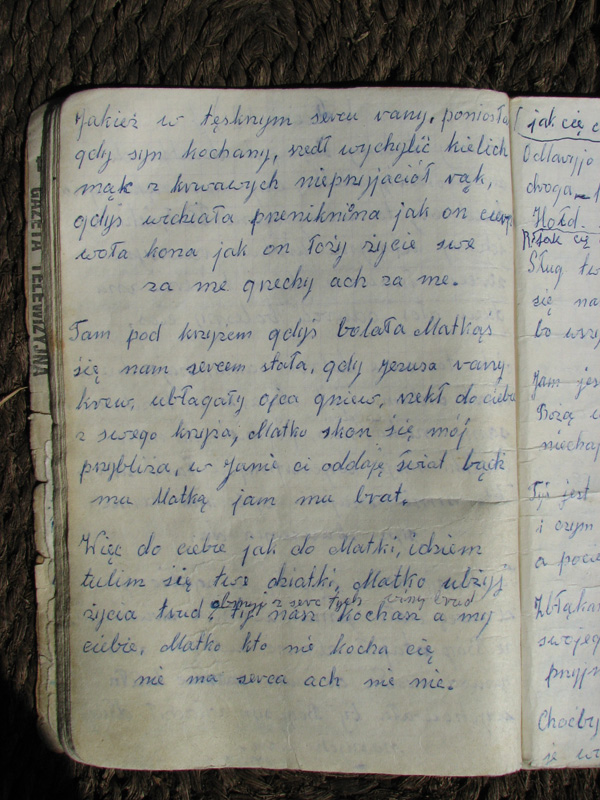 Jakież w tęsknym sercu rany, poniosła
gdy syn kochany, szedł wychylić kielich
mąk z krwawych nieprzyjaciół rąk,
gdyś widziała przeniknina jak on cierp
woła kona jak on łoży życie swe
za me grzechy ach za me.
Tam pod krzyżem gdyś bolała Matkąś
się nam sercem stała, gdy Jezusa rany
krew, ubłagały ojca gniew, rzekł do ciebie
z swego krzyża, Matko skon się mój
przybliża, w Janie ci oddaję świat bądź
mu Matką jam mu brat.
Więc do ciebie jak do Matki, idziem
tulim się twe dziatki, Matko ulżyj
życia trud, obmyj z serc tych winy brud
ty nasz kochasz a my
ciebie, Matko kto nie kocha cię
nie ma serca ach nie nie.
GAZETA TELEWIZYJNA
jak cię c
droga
Hołd.
Sług tw
się na
bo wszy
Jam jes
Bożą
niechaj
Tyś jest
i czym
a pocie
Zbłąka
swojeg
przyjm
Choćby